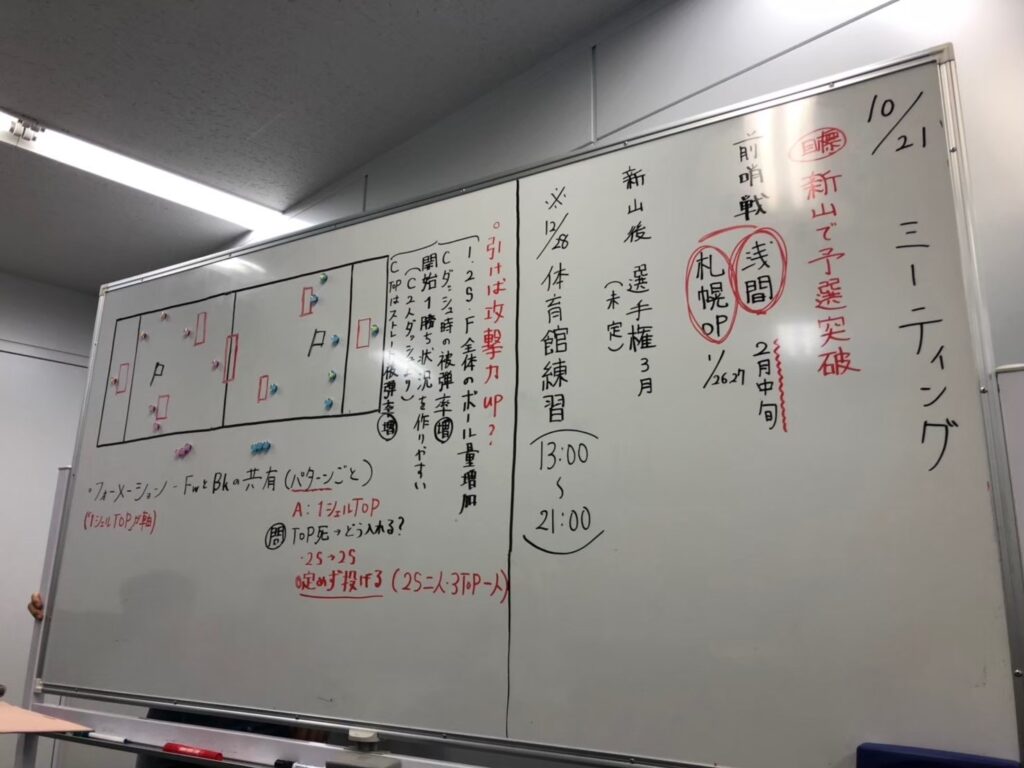 10/21 ミーティング
目標 新山で予選突破
前哨戦 浅間 2月中旬
札幌OP 1/26.27
新山後 選手権 3月
(未定)
※12/28 体育館練習 (13:00〜21:00)
。引けば攻撃力up?
1.2S・F全体のボール量増加
Cダッシュ時の被弾率増
開始1勝ち状況を作りやすい
(C2人ダッシュ)
C TOPはストレート被弾率増
・フォーメーション-FwとBkの共有(パターンごと)
("1シェルTOP"が軸)
A:1シェルTOP
問 TOP死→どう入れる?
・2S→2S
定めず投げる(2S二人・3TOP一人)
P
P